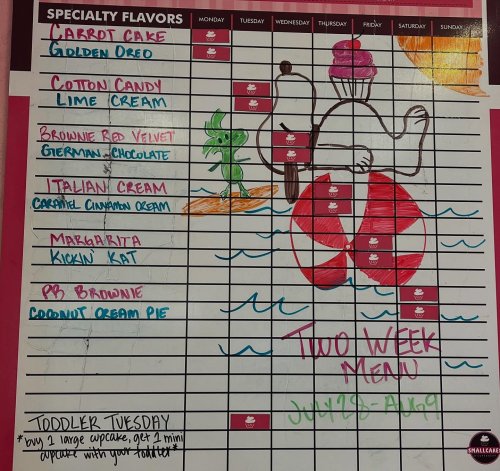 SPECIALTY FLAVORS MONDAY TUESDAY WEDNESDAY THURSDAY FRIDAY SATURDAY SUNDAY
CARROT CAKE
GOLDEN OREO
COTTON CANDY
LIME CREAM
BROWNIE RED VELVET
GERMAN CHOCOLATE
ITALIAN CREAM
CARAMEL CINNAMON CREAM
MARGARITA
KICKIN' KAT
PB BROWNIE
COCONUT CREAM PIE
TWO WEEK
MENU
JULY 28 - AUG 9
TODDLER TUESDAY
*buy 1 large cupcake, get 1 mini
cupcake with your toddler*
SMALLCAKES